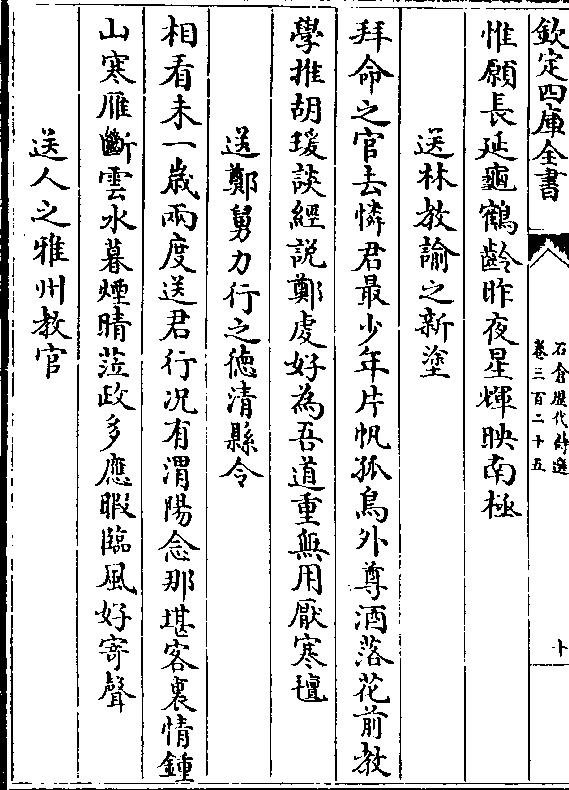 欽定四庫全書
石倉歷代詩選
卷三百二十五
十
惟願長延龜鶴齡昨夜星輝映南極
送林教諭之新塗
拜命之官去憐君最少年片帆孤鳥外尊酒落花前教
學推胡瑗談經説鄭虔好為吾道重無用厭寒氊
送鄭舅力行之徳清縣令
相看未一歳兩度送君行况有渭陽念那堪客裏情鍾
山寒雁斷雲水暮煙晴蒞政多應暇臨風好寄聲
送人之雅州教官